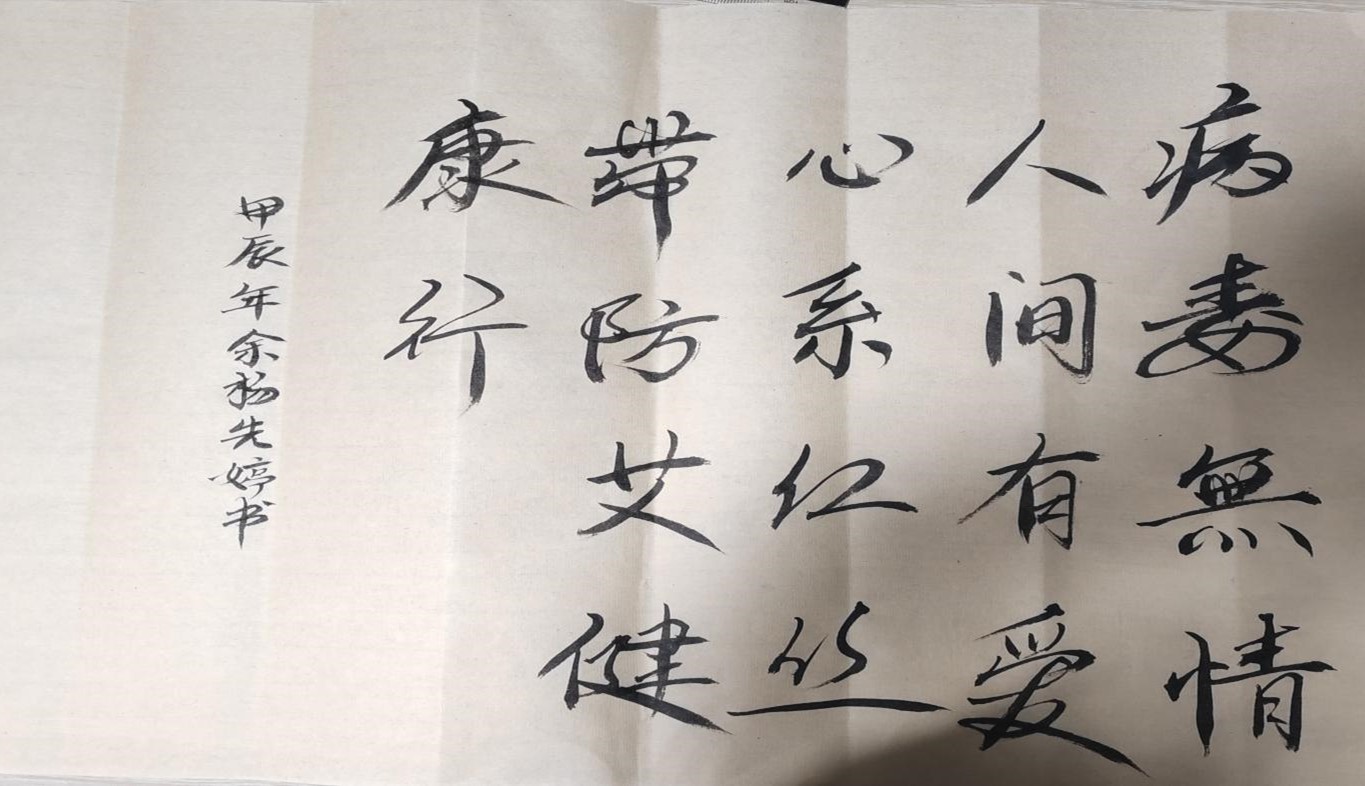 病毒無情
人间有爱
心系红丝
带防艾健
康行
甲辰年余杨先婷书